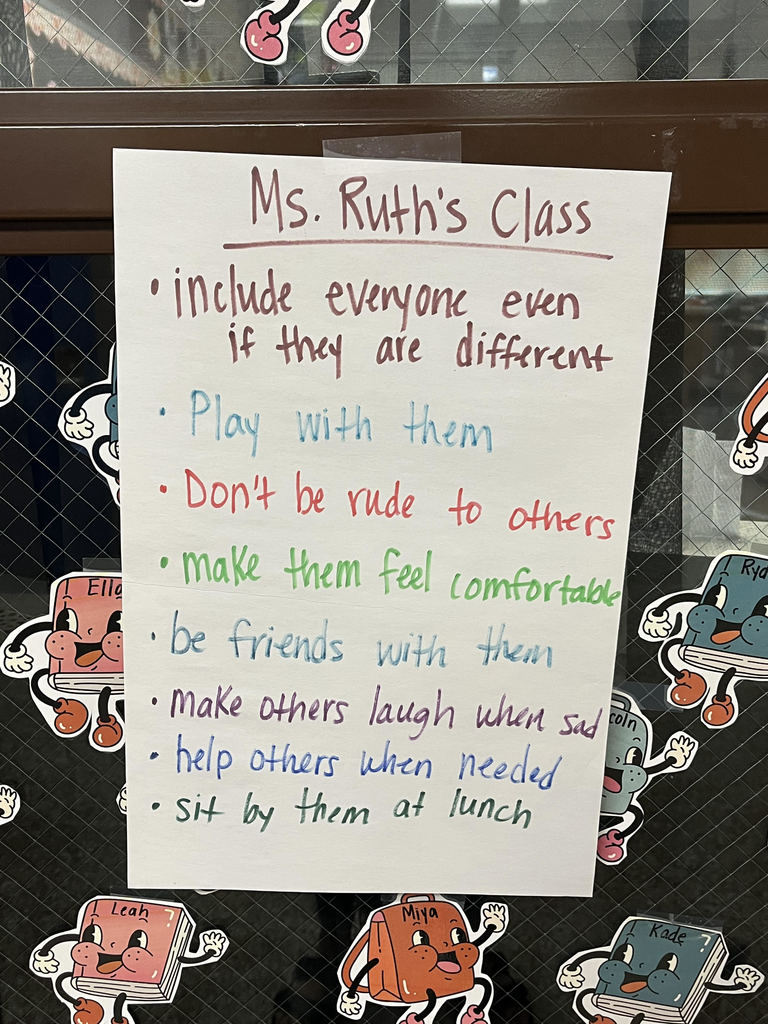 Ms. Ruth's Class
• include everyone even
if they are different
• Play with them
• Don't be rude to others
• make them feel comfortable
• be friends with them
• make others laugh when sad
• help others when needed
• sit by them at lunch
Ella
Ryd
coln
Leah
Miya
Kade